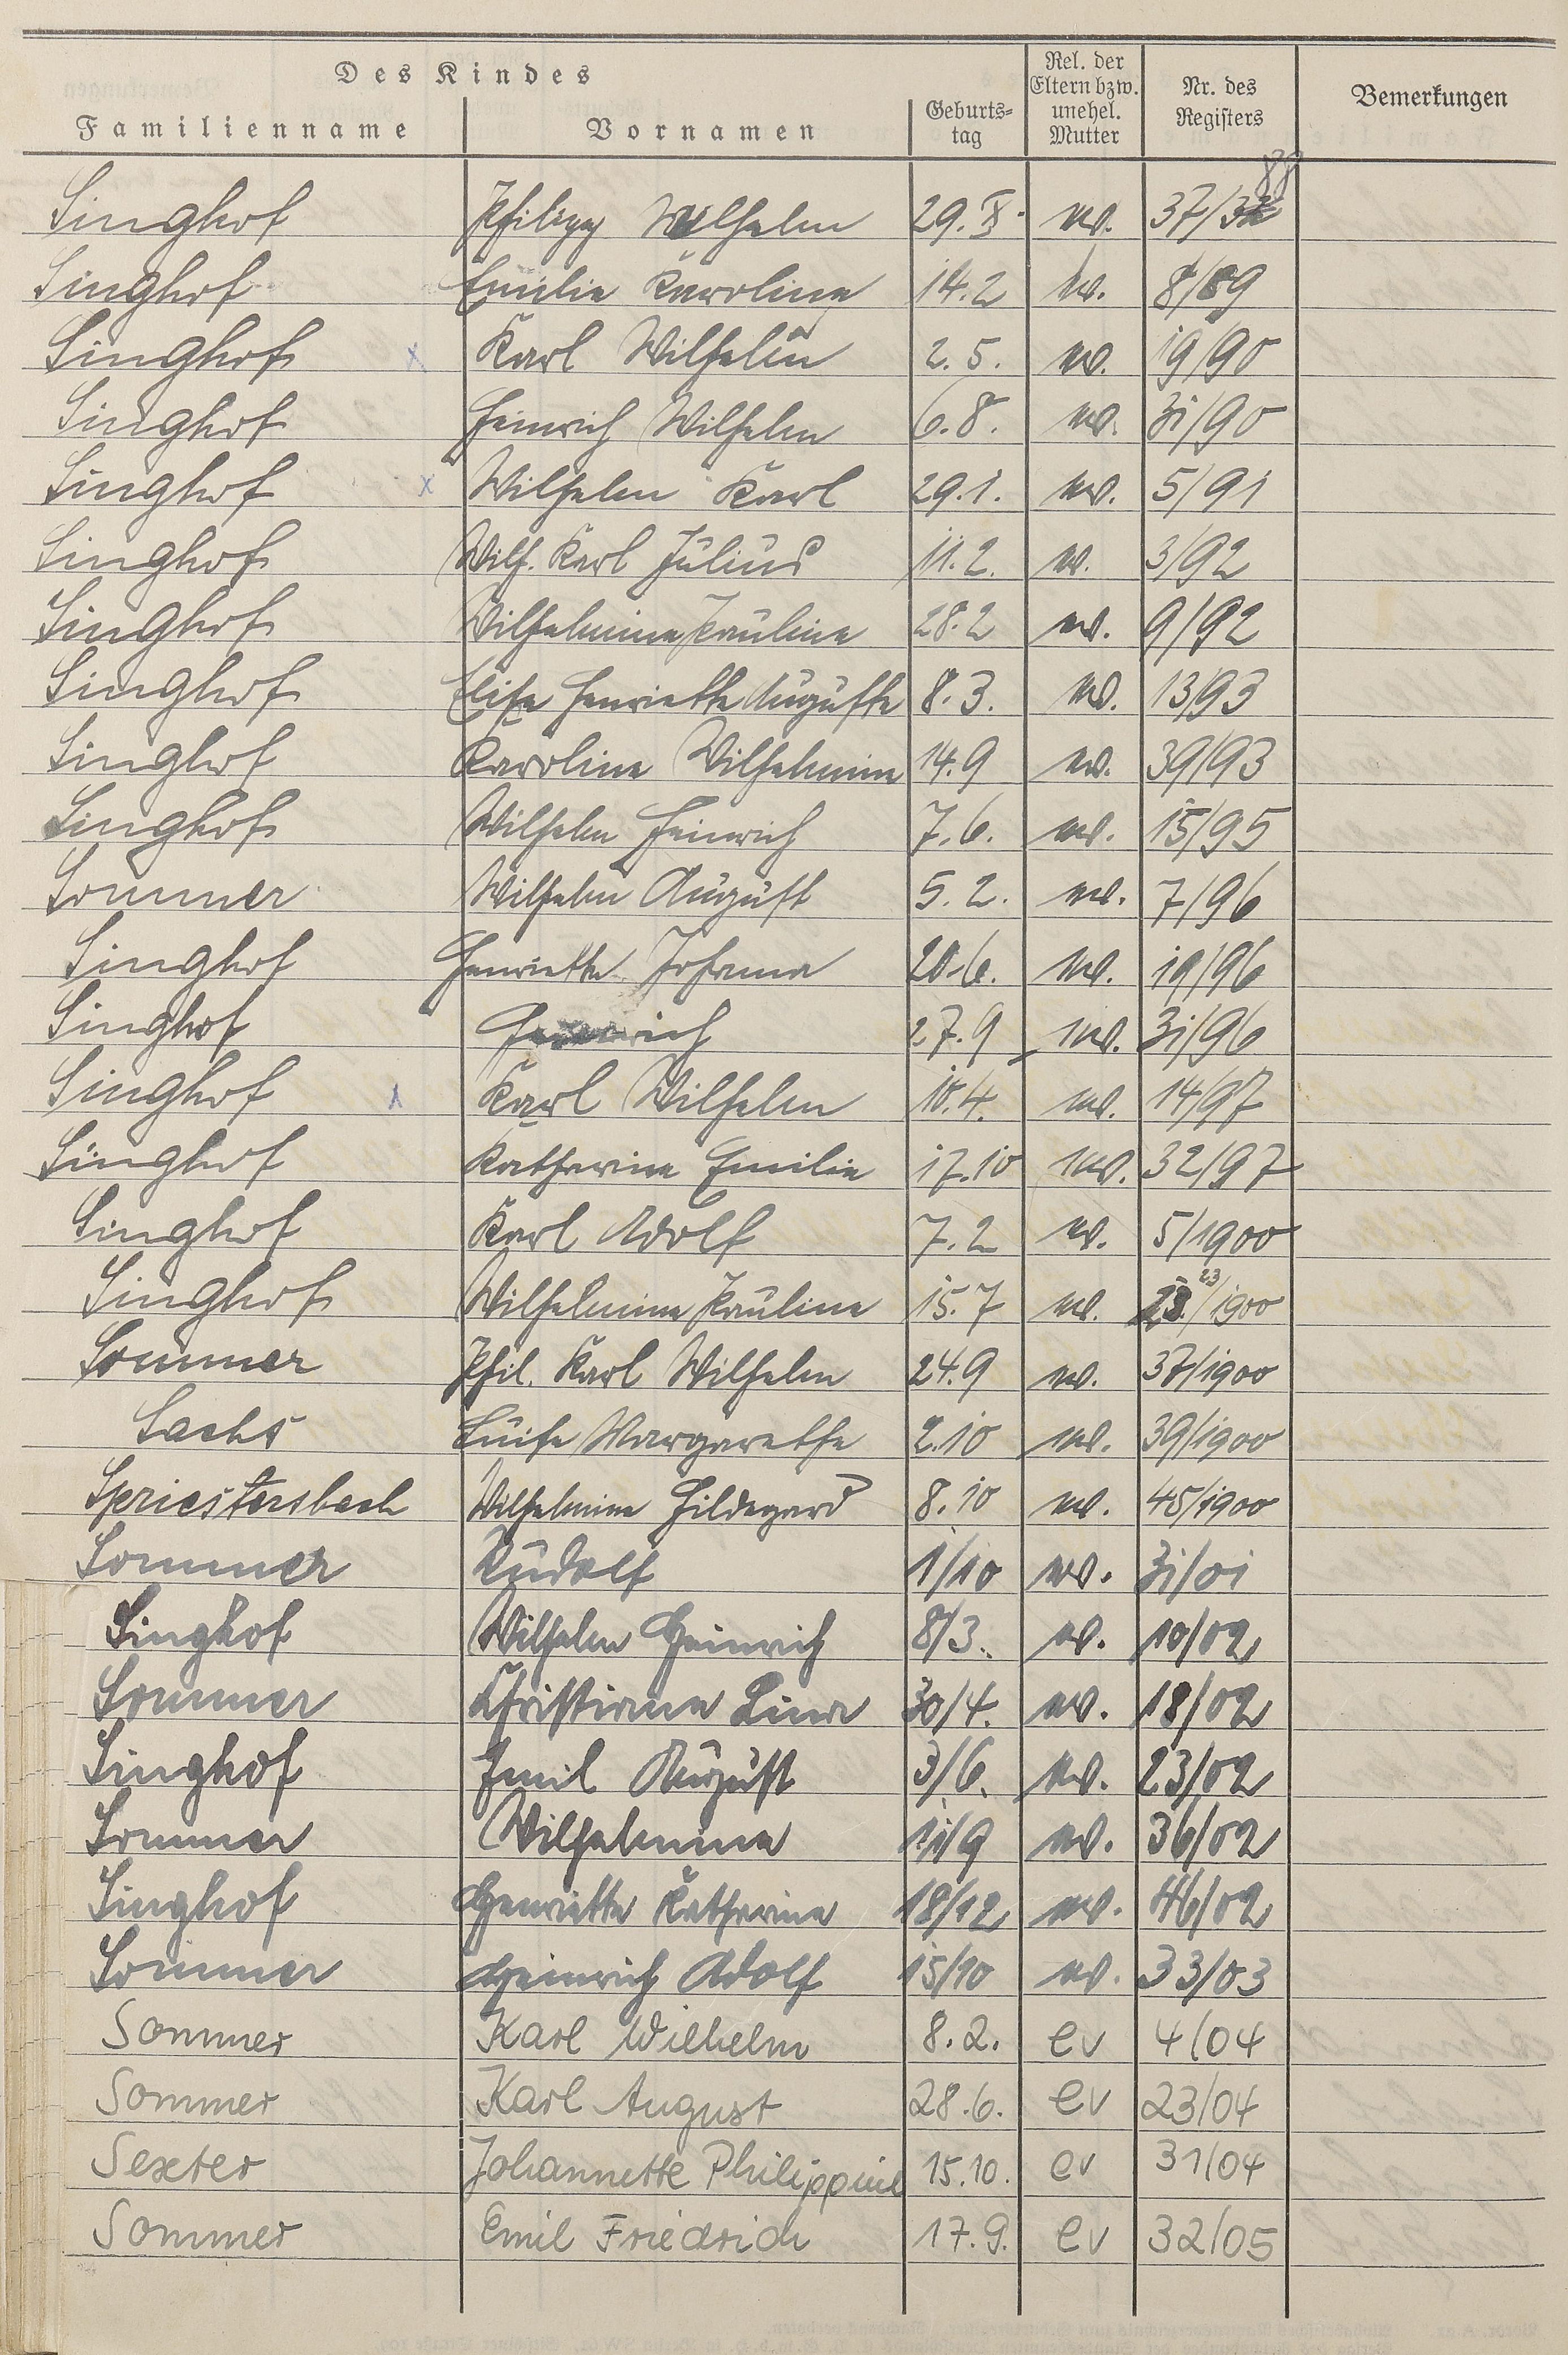 Des Kindes
Familienname Vornamen Geburts-tag Rel. der Eltern bzw. unehel. Mutter Nr. des Registers Bemerkungen
Singhof Philipp Wilhelm 29. X. ev. 37/88
Singhof Emilie Karoline 14.2 ev. 8/89
Singhof x Karl Wilhelm 2.5. ev. 19/90
Singhof Heinrich Wilhelm 6.8. ev. 31/90
Singhof x Wilhelm Karl 29.1. ev. 5/91
Singhof Wilh. Karl Julius 11.2. ev. 3/92
Singhof Wilhelmine Pauline 28.2 ev. 9/92
Singhof Elise Henriette Auguste 8.3. ev. 13/93
Singhof Karoline Wilhelmine 14.9 ev. 39/93
Singhof Wilhelm Heinrich 7.6. ev. 15/95
Sommer Wilhelm August 5.2. ev. 7/96
Singhof Henriette Johanna 20.6. ev. 19/96
Singhof Heinrich 27.9 ev. 31/96
Singhof x Karl Wilhelm 10.4. ev. 14/97
Singhof Katharine Emilie 17.10 ev. 32/97
Singhof Karl Adolf 7.2 ev. 5/1900
Singhof Wilhelmine Pauline 15.7 ev. 23/1900
Sommer Phil. Karl Wilhelm 24.9 ev. 37/1900
Sachs Luise Margarethe 2.10 ev. 39/1900
Spriestersbach Wilhelmine Hildegard 8.10 ev. 45/1900
Sommer Rudolf 1/10 ev. 31/01
Singhof Wilhelm Heinrich 8/3. ev. 10/02
Sommer Christiane Lina 30/4. ev. 18/02
Singhof Emil August 3/6. ev. 23/02
Sommer Wilhelmine 11/9 ev. 36/02
Singhof Henriette Katharine 18/12 ev. 46/02
Sommer Heinrich Adolf 15/10 ev. 33/03
Sommer Karl Wilhelm 8.2. ev 4/04
Sommer Karl August 28.6. ev 23/04
Sexter Johannette Philippine 15.10. ev 31/04
Sommer Emil Friedrich 17.9. ev 32/05